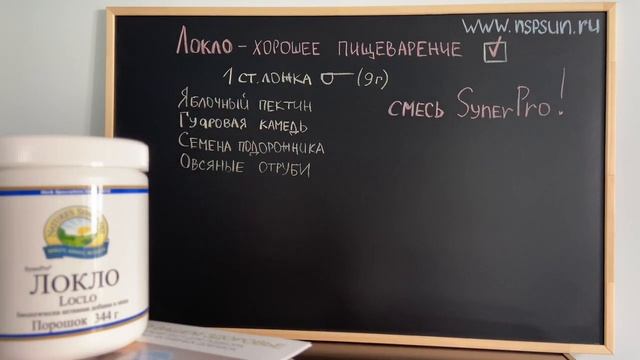 www.nspsun.ru
Локло - хорошее пищеварение
1 ст. ложка (9г)
Яблочный пектин
Гуаровая камедь
Семена подорожника
Овсяные отруби
смесь SynerPro!
NATURE'S SUNSHINE
SynerPro
ЛОКЛО
LOCLO
Биологически активная добавка к пище
Порошок 344 г